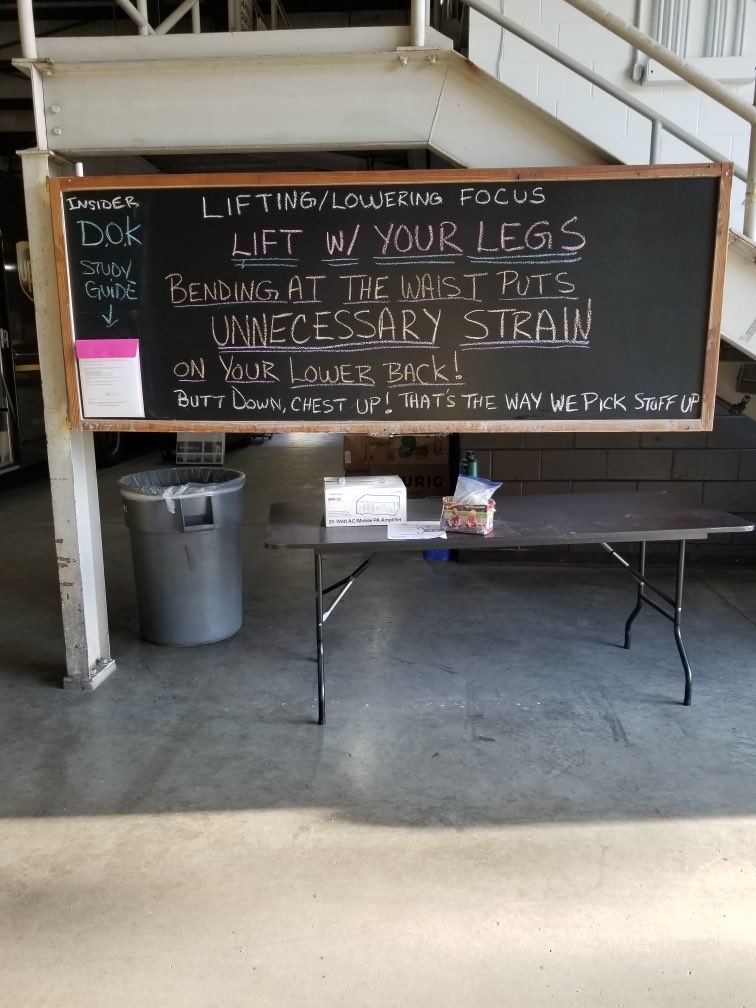 INSIDER
D.O.K
STUDY
GUIDE
LIFTING/LOWERING FOCUS
LIFT W/ YOUR LEGS
BENDING AT THE WAIST PUTS
UNNECESSARY STRAIN
ON YOUR LOWER BACK!
BUTT DOWN, CHEST UP! THAT'S THE WAY WE PICK STUFF UP
20-Watt AC/Mobile PA Amplifier